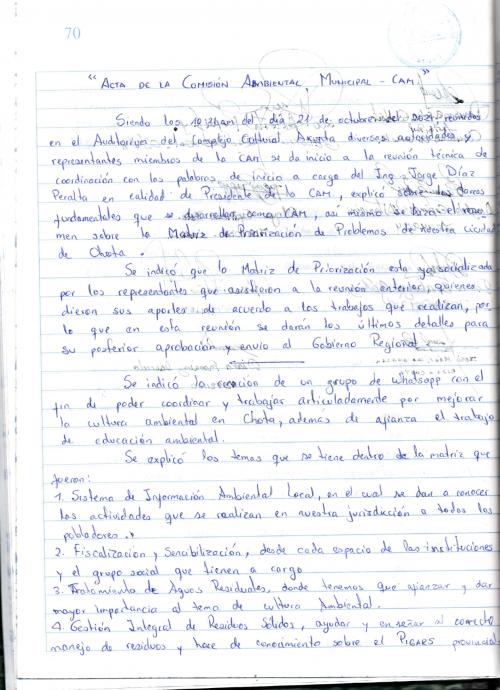 70
"ACTA DE LA COMISIÓN AMBIENTAL MUNICIPAL - CAM."
Siendo las 10:20am del día 21 de octubre del 2021 reunidos
en el Auditorio del Complejo Cultural Akunta diversas autoridades y
representantes miembros de la CAM se da inicio a la reunión técnica de
coordinación con las palabras de inicio a cargo del Ing. Jorge Díaz
Peralta en calidad de Presidente de la CAM, explicó sobre los
fundamentales que se desarrollan como CAM, asi mismo se
men sobre la Matriz de Priorización de Problemas de nuestra ciudad
de Chota.
Se indicó que la Matriz de Priorización esta ya socializada
por los representantes que asistieron a la reunión anterior, quienes
dieron sus aportes de acuerdo a los trabajos que realizan, por
lo que en esta reunión se darán los últimos detalles para
su posterior aprobación y envio al Gobierno Regional
Se indicó la creación de un grupo de whatsapp con el
fin de poder coordinar y trabajar articuladamente por mejorar
la cultura ambiental en Chota, además de afianza el trabajo
de educación ambiental.
Se explicó los temas que se tiene dentro de la matriz que
fueron:
1. Sistema de Información Ambiental Local, en el cual se dan a conocer
las actividades que se realizan en nuestra jurisdicción a todos los
pobladores.
2. Fiscalización y Sensibilización, desde cada espacio de las instituciones
y el grupo social que tienen a cargo
3. Tratamiento de Aguas Residuales, donde tenemos que afianzar y dar
mayor importancia al tema de cultura Ambiental.
4. Gestión Integral de Residuos Sólidos, ayudar y enseñar al correcto
manejo de residuos y hace de conocimiento sobre el PIGARS provincial